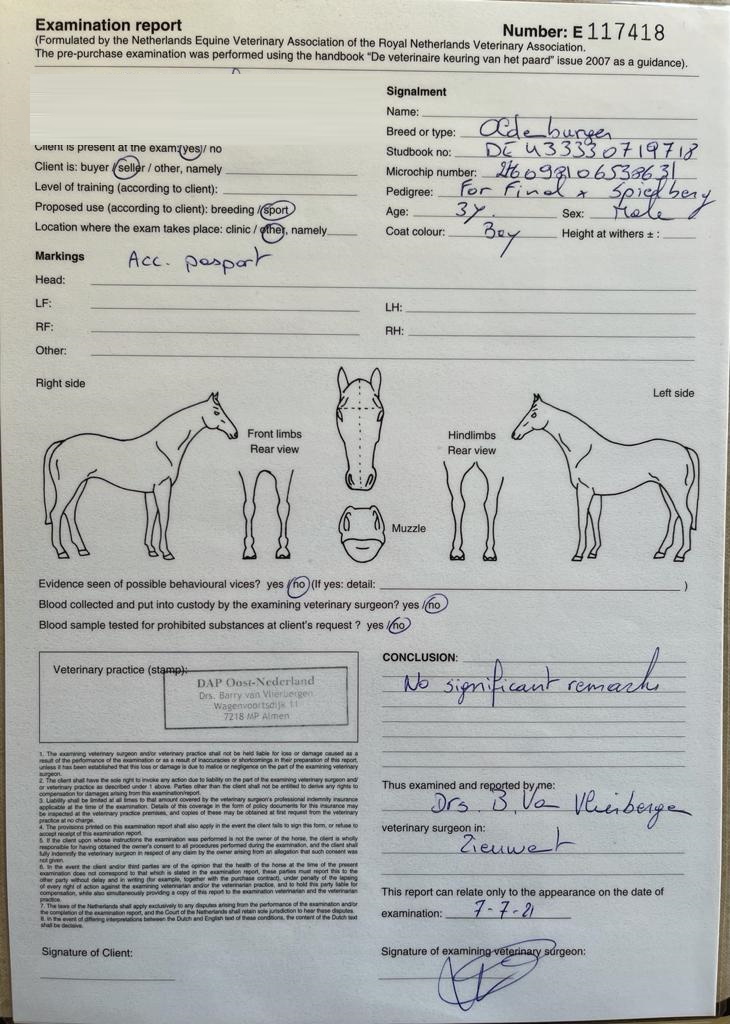 Examination report
Number: E 117418
(Formulated by the Netherlands Equine Veterinary Association of the Royal Netherlands Veterinary Association.
The pre-purchase examination was performed using the handbook "De veterinaire keuring van het paard" issue 2007 as a guidance).
Client is present at the exam: yes / no
Client is: buyer / seller / other, namely
Level of training (according to client):
Proposed use (according to client): breeding / sport
Location where the exam takes place: clinic / other, namely
Signalment
Name:
Breed or type: Oldenburger
Studbook no: DE 433330719718
Microchip number:
Pedigree: For Final x Spielberg
Age: 3y. Sex: Male
Coat colour: Bay Height at withers ± :
Markings Acc. pasport
Head:
LF: LH:
RF: RH:
Other:
Right side
Left side
Front limbs
Rear view
Hindlimbs
Rear view
Muzzle
Evidence seen of possible behavioural vices? yes / no (If yes: detail: )
Blood collected and put into custody by the examining veterinary surgeon? yes / no
Blood sample tested for prohibited substances at client's request ? yes / no
Veterinary practice (stamp):
DAP Oost-Nederland
Drs. Barry van Vlierbergen
Wagenvoortsdijk 11
7218 MP Almen
1. The examining veterinary surgeon and/or veterinary practice shall not be held liable for loss or damage caused as a
result of the performance of the examination or as a result of inaccuracies or shortcomings in their preparation of this report,
unless it has been established that this loss or damage is due to malice or negligence on the part of the examining veterinary
surgeon.
2. The client shall have the sole right to invoke any action due to liability on the part of the examining veterinary surgeon and/
or veterinary practice as described under 1 above. Parties other than the client shall not be entitled to derive any rights to
compensation for damages arising from this examination/report.
3. Liability shall be limited at all times to that amount covered by the veterinary surgeon's professional indemnity insurance
applicable at the time of the examination. Details of this coverage in the form of policy documents for this insurance may
be inspected at the veterinary practice premises, and copies of these may be obtained at first request from the veterinary
practice at no charge.
4. The provisions printed on this examination report shall also apply in the event the client fails to sign this form, or refuse to
accept receipt of this examination report.
5. If the client upon whose instructions the examination was performed is not the owner of the horse, the client is wholly
responsible for having obtained the owner's consent to all procedures performed during the examination, and the client shall
fully indemnify the veterinary surgeon in respect of any claim by the owner arising from an allegation that such consent was
not given.
6. In the event the client and/or third parties are of the opinion that the health of the horse at the time of the present
examination does not correspond to that which is stated in the examination report, these parties must report this to the
other party without delay and in writing (for example, together with the purchase contract), under penalty of the lapsing
of every right of action against the examining veterinarian and/or the veterinary practice, and to hold this party liable for
compensation, while also simultaneously providing a copy of this report to the examination veterinary and the veterinary
practice.
7. The laws of the Netherlands shall apply exclusively to any disputes arising from the performance of the examination and/or
the completion of the examination report, and the Court of the Netherlands shall retain sole jurisdiction to hear these disputes.
8. In the event of differing interpretations between the Dutch and English text of these conditions, the content of the Dutch text
shall be decisive.
Signature of Client:
CONCLUSION:
No significant remarks
Thus examined and reported by me:
Drs. B. Van Vlierbergen
veterinary surgeon in:
Zieuwent
This report can relate only to the appearance on the date of
examination: 7-7-21
Signature of examining veterinary surgeon: